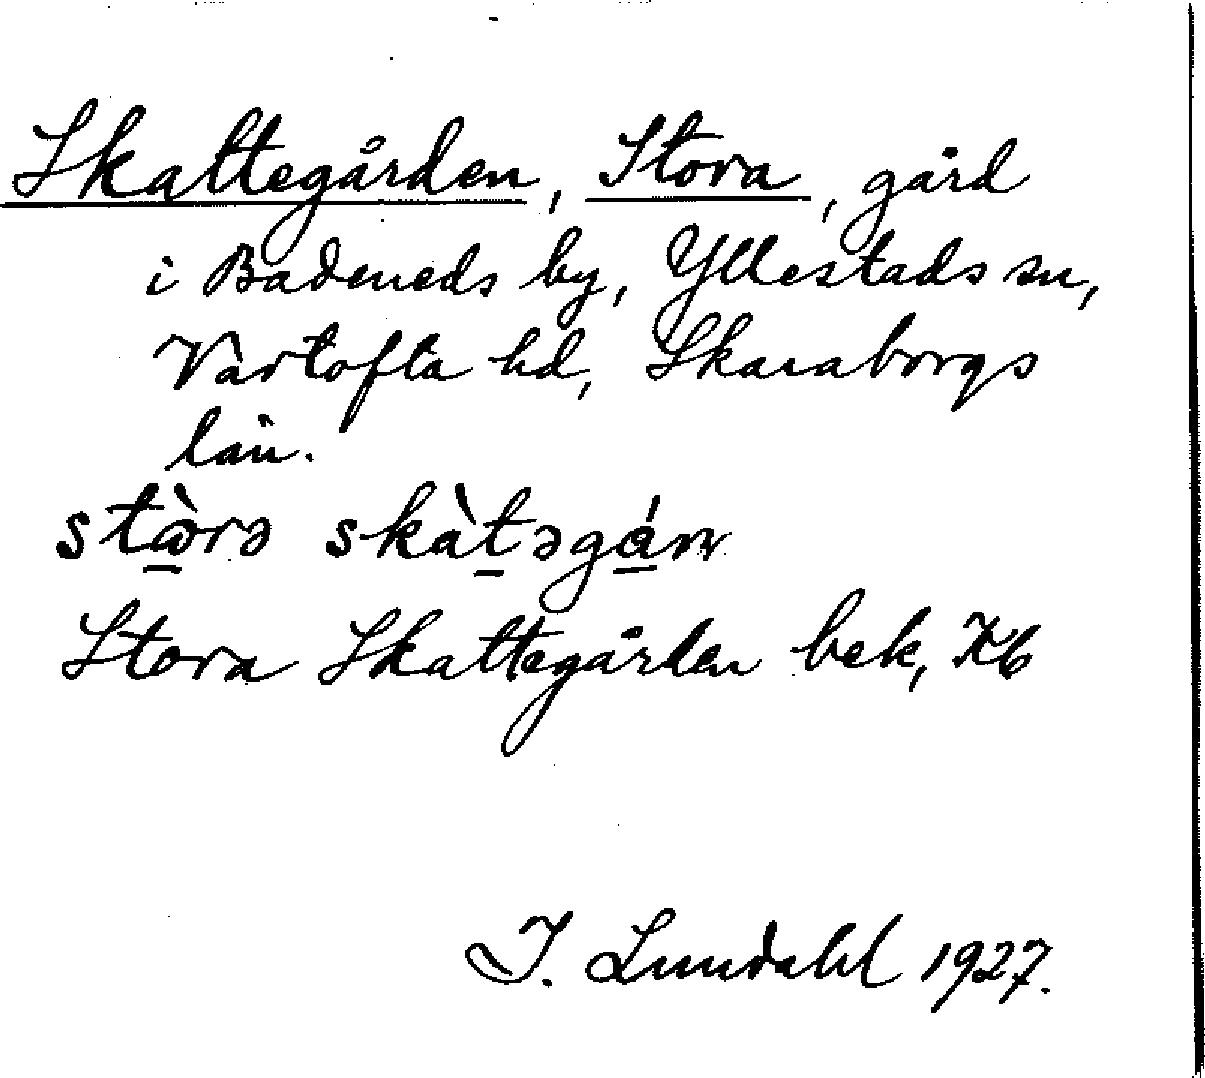 Skattegården, Stora, gård
i Badeneds by, Yllestads sn,
Vartofta hd, Skaraborgs
län.
stɷ̀rə skàtəgáṇ
Stora Skattegården bek, Kb
I. Lundahl 1927.